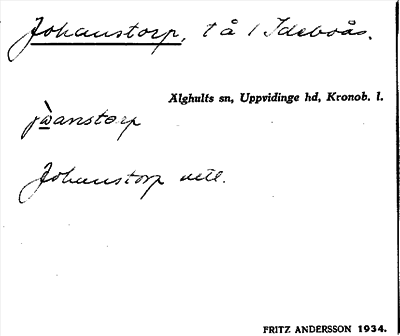 Johanstorp, t å / Ideboås.
Älghults sn, Uppvidinge hd, Kronob. l.
Johanstorp
FRITZ ANDERSSON 1934.